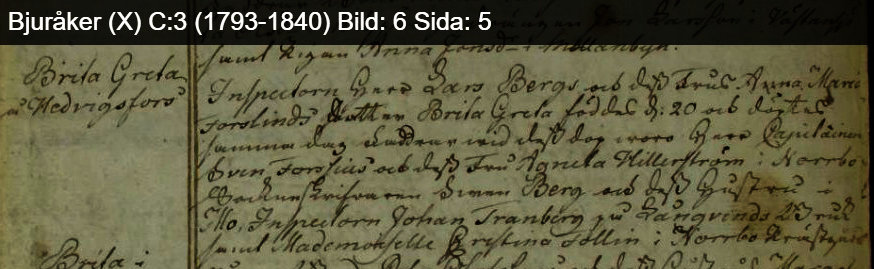 Bjuråker (X) C:3 (1793-1840) Bild: 6 Sida: 5
Jon Larsson i
samt Pigan Anna Jonsdr i Mellanbyn.
Brita Greta
Hedvigsfors
Inspectorn Herr Lars Bergs och deß Frus Anna Maria
Forslinds dotter Brita Greta föddes d: 20 och döptes
samma dag faddrar wid deß dop woro Herr Capitainen
Sven Forssius och deß Fru Agneta Hillerström i Norrbo
Sockneskrifvaren Swen Berg och deß Hustru i
Mo, Inspectorn Johan Tranberg på Långvinds Bruk
samt Mademoiselle Christina Follin i Norrbo
Brita i